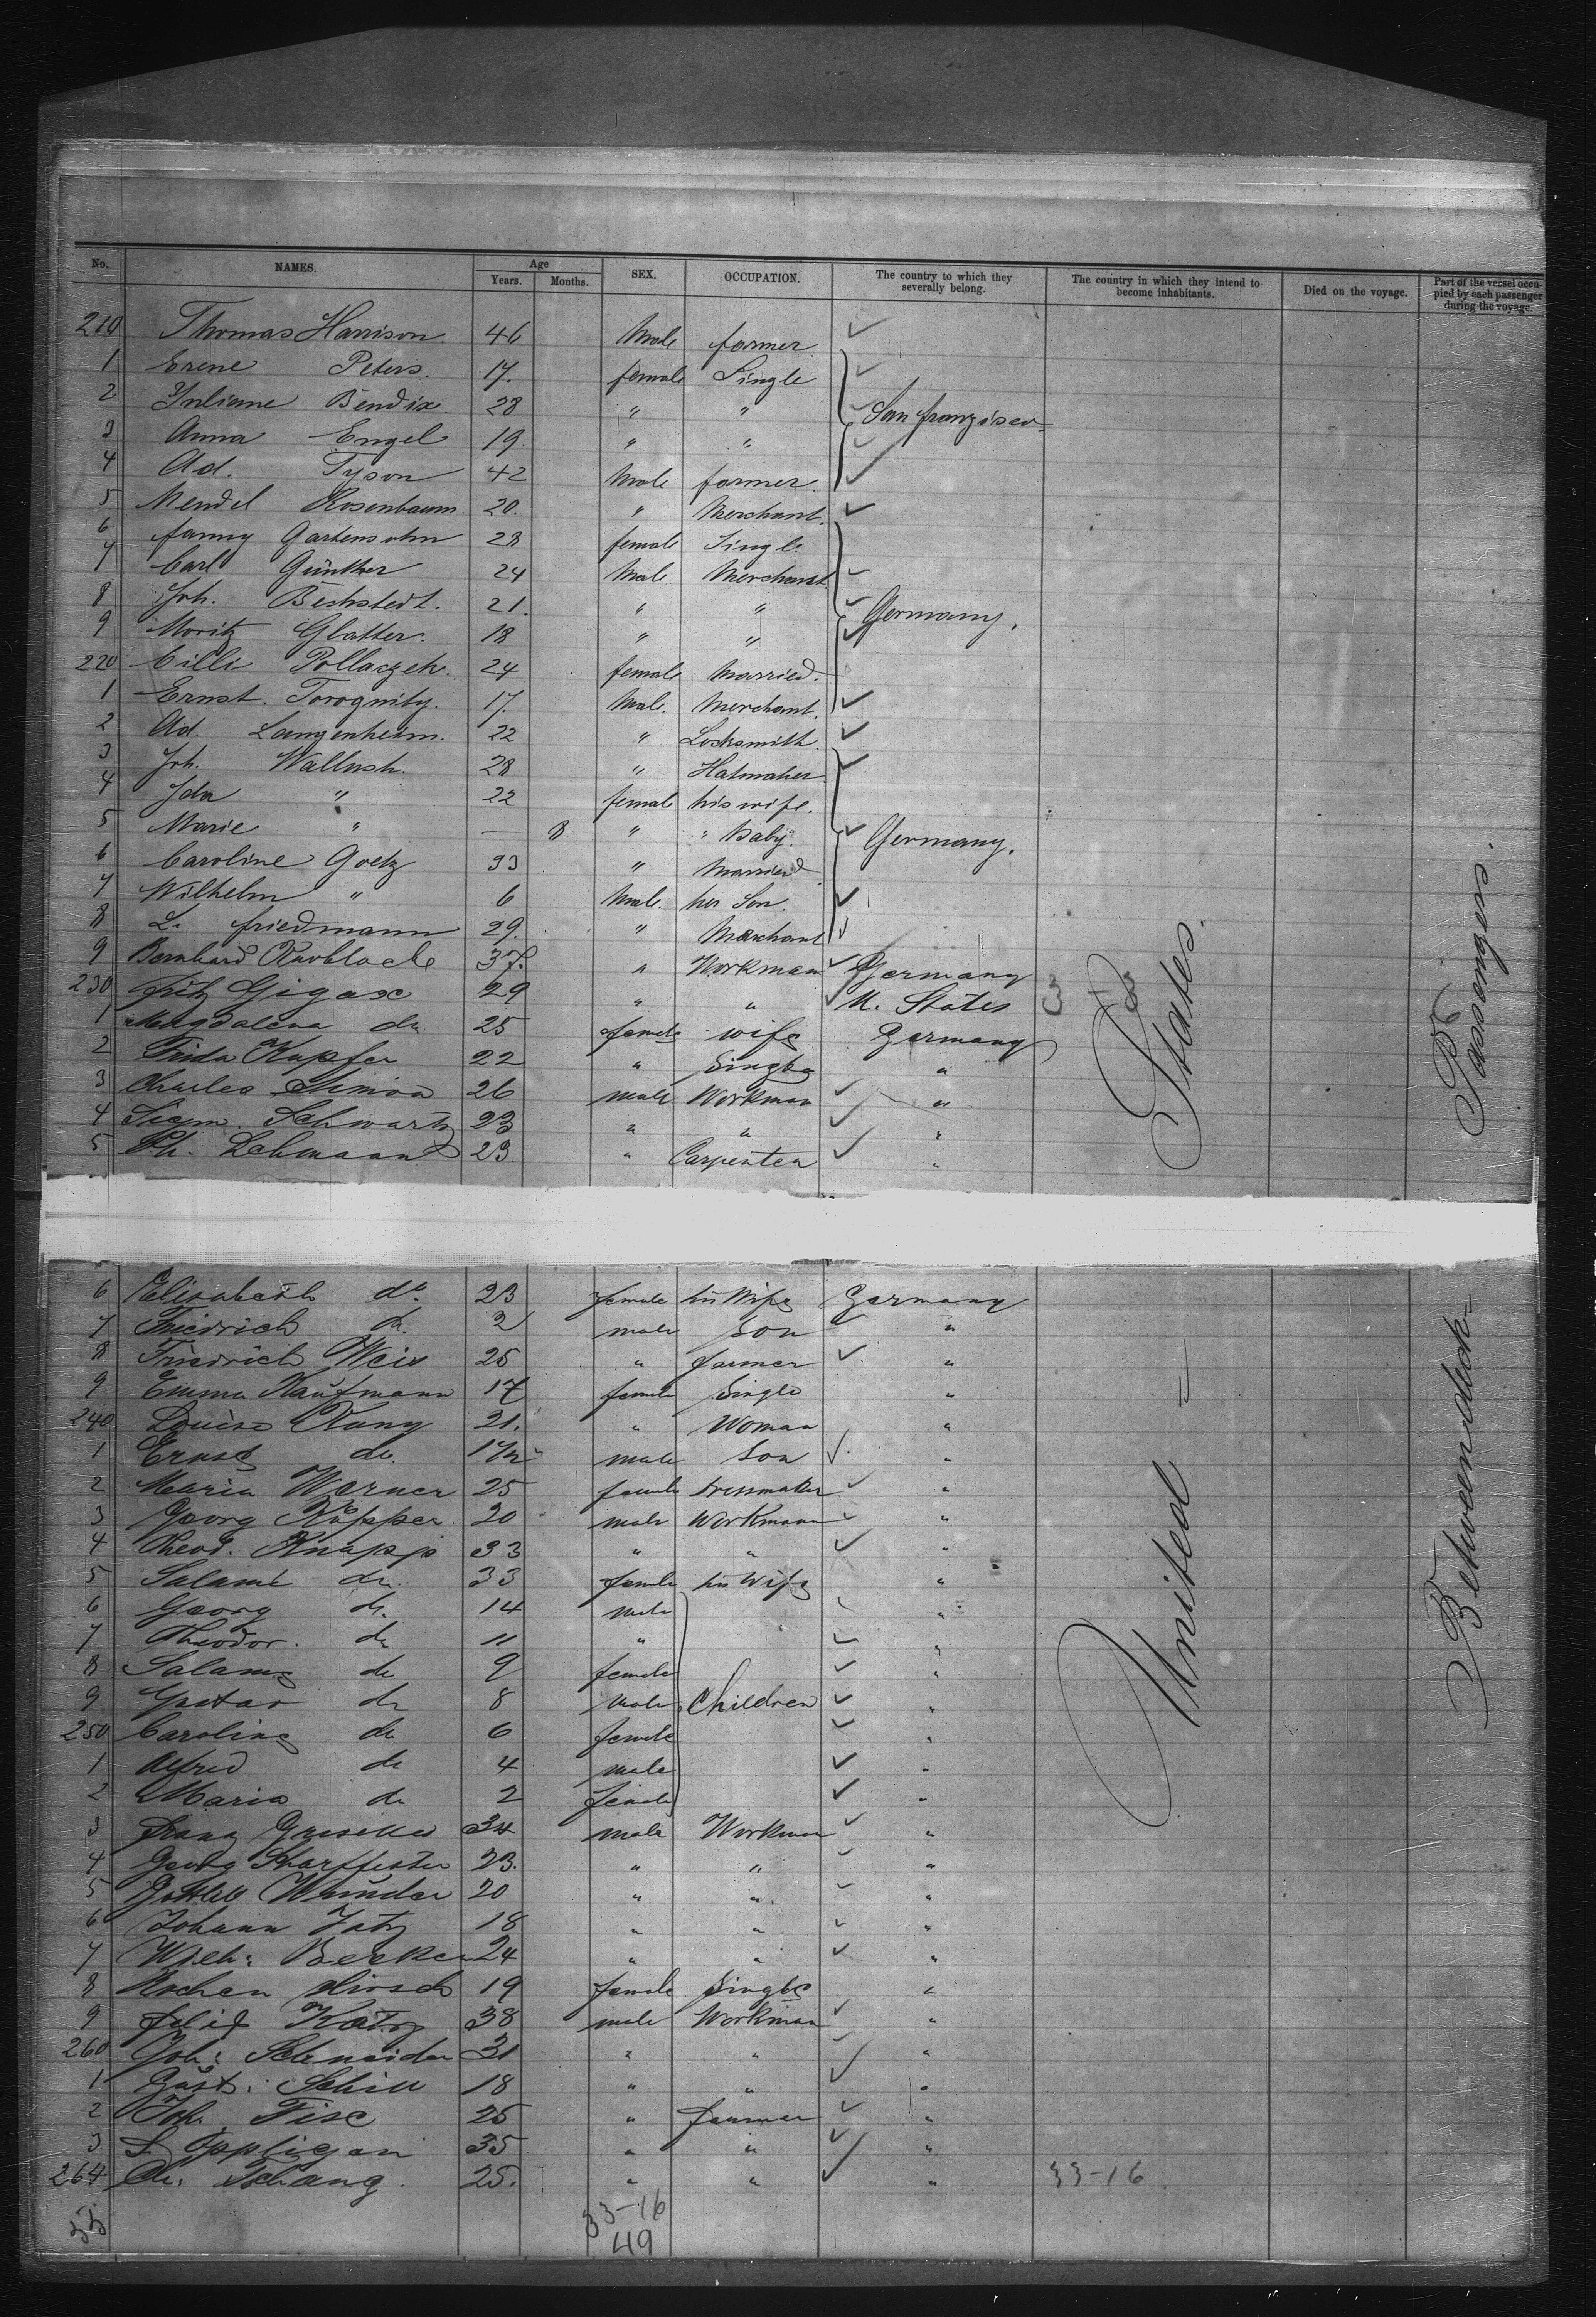 No. NAMES. Age Years. Months. SEX. OCCUPATION. The country to which they severally belong. The country in which they intend to become inhabitants. Died on the voyage. Part of the vessel occupied by each passenger during the voyage.
210 Thomas Harrison 46 Male farmer
1 Erene Peters. 17. female Single
2 Juliane Bendix 28 " " San franzisco
3 Anna Engel 19. " "
4 Ad. Tyson 42 Male farmer
5 Mendel Rosenbaum 20. " Merchant.
6 fanny Gartensohn 28 female Single
7 Carl Günther 24 Male Merchant
8 Joh. Bechstedt. 21. " " Germany.
9 Moritz Glatter. 18 " "
220 Cilli Pollaczek. 24 female Married.
1 Ernst. 17. Male. Merchant.
2 Ad. Langenheim. 22 " Locksmith.
3 Joh. Wallush. 28 " Hatmaker
4 Ida " 22 female his wife.
5 Marie " — 8 " " Baby. Germany.
6 Caroline Goetz 33 " Married
7 Wilhelm " 6 Male. her Son.
8 L. friedmann 29. " Merchant
9 Bernhard Knoblock 37. " Workman Germany
230 fritz Gigax 29 " " U. States
1 Magdalena do 25 female wife Germany
2 Frida Kupfer 22 " Single "
3 Charles 26 male Workman "
4 Sigm. Schwartz 23 " " "
5 Ph. Lehmann 23 " Carpenter "
6 Elisabeth do 23 female his Wife Germany
7 Friedrich do 2 male Son "
8 Friedrich Weis 25 " farmer "
9 Emma Kaufmann 17 female Single "
240 Louise Kuny 21. " Woman "
1 Ernst do. 1½ male Son "
2 Maria Werner 25 female dressmaker "
3 Georg Küpper 20 male Workman "
4 Theod. Knapp 33 " " "
5 Salamé do. 33 female his Wife "
6 Georg do. 14 male "
7 Theodor. do 11 " "
8 Salamé do 9 female "
9 Gustav do 8 male Children "
250 Caroline do 6 female "
1 Alfred do 4 male "
2 Maria do 2 female "
3 Franz 34 male Workman "
4 Georg 23. " " "
5 Gottlieb Wunder 20 " " "
6 Johann 18 " " "
7 Wilh: Becker 24 " " "
8 Hirsch 19 female Single "
9 felix Katz 38 male Workman "
260 Joh: Schneider 31 " " "
1 Gust: Schill 18 " " "
2 Joh. 25 " farmer "
3 S. Oppligen 35 " " "
264 Ch: Tschang. 25. " " " 33-16
33-16
49
United States.
Betweendeck-Passangers.